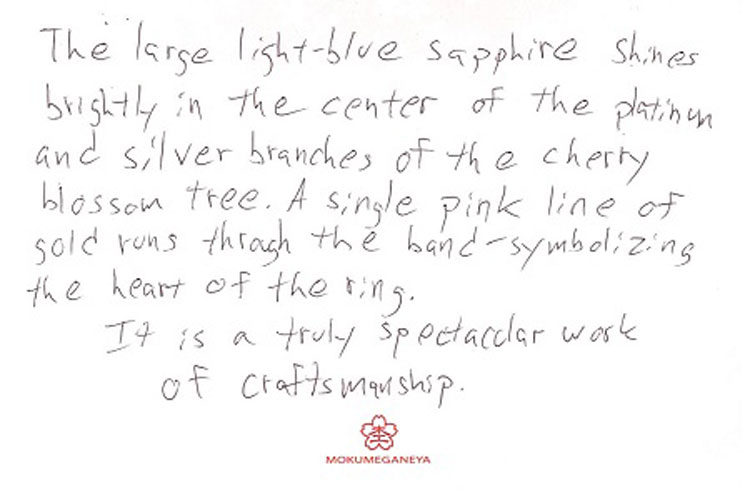 The large light-blue sapphire shines
brightly in the center of the platinum
and silver branches of the cherry
blossom tree. A single pink line of
gold runs through the band-symbolizing
the heart of the ring.
It is a truly spectacular work
of craftsmanship.
MOKUMEGANEYA